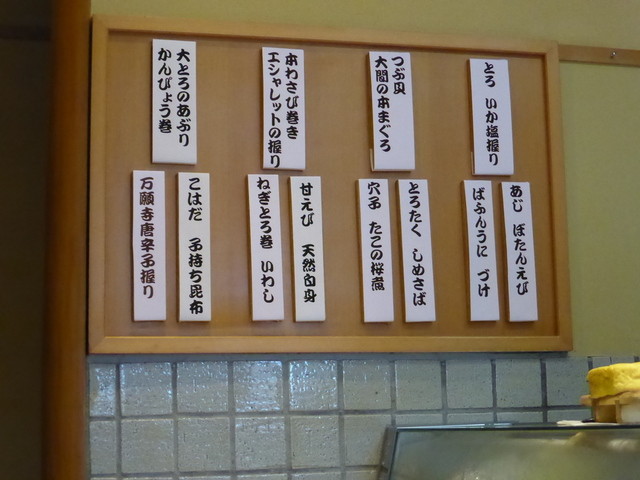 とろ いか塩握り
つぶ貝
大間の本まぐろ
本わさび巻き
エシャレットの握り
大とろのあぶり
かんぴょう巻
あじ ぼたんえび
ばふんうに づけ
とろたく しめさば
穴子 たこの桜煮
甘えび 天然白身
ねぎとろ巻 いわし
こはだ 子持ち昆布
万願寺唐辛子握り